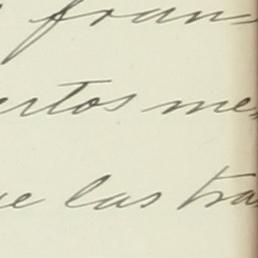 y fran
ertos me
ue las tra